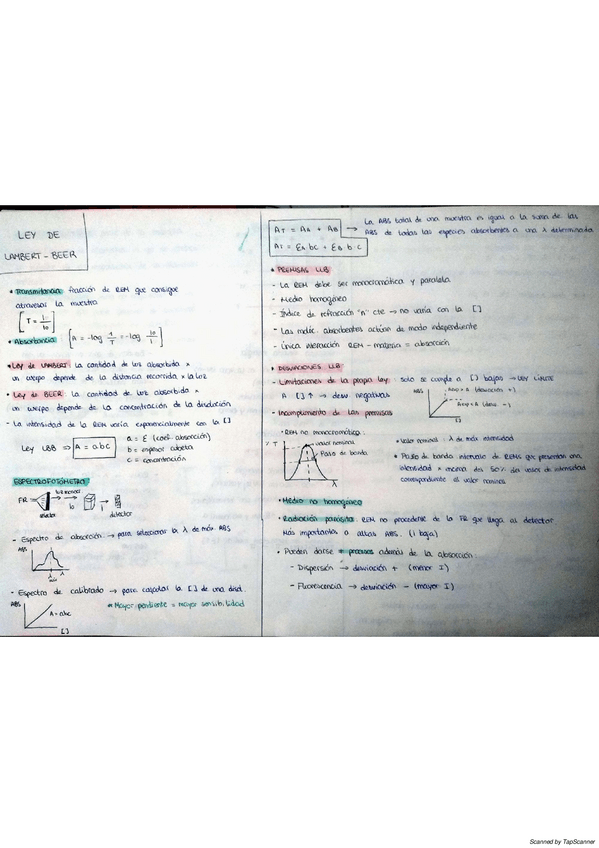 LEY DE
LAMBERT-BEER
• Transmitancia: fracción de REM que consigue
atravesar la muestra
[T = I/Io]
• Absorbancia [A = -log 1/T = -log Io/I]
• Ley de LAMBERT: La cantidad de luz absorbida x
un cuerpo depende de la distancia recorrida x la luz
• Ley de BEER: La cantidad de luz absorbida x
un cuerpo depende de la concentración de la disolución
- La intensidad de la REM varía exponencialmente con la []
Ley LBB ⇒ A = abc
a = ε (coef. absorción)
b = espesor cubeta
c = concentración
ESPECTROFOTÓMETRO
FR → luz monocr. → Io → I →
selector
detector
- Espectro de absorción → para seleccionar la λ de máx ABS
ABS
λ
λ máx
- Espectro de calibrado → para calcular la [] de una disol.
ABS
A = abc
[]
* Mayor pendiente = mayor sensibilidad
AT = AA + AB →
AT = εA·bC + εB·b·c
La ABS total de una muestra es igual a la suma de las
ABS de todas las especies absorbentes a una λ determinada
• PREMISAS LLB
- La REM debe ser monocromática y paralela
- Medio homogéneo
- Índice de refracción "n" cte → no varía con la []
- Las moléc. absorbentes actúan de modo independiente
- Única interacción REM-materia = absorción
• DESVIACIONES LLB
- Limitaciones de la propia ley: solo se cumple a [] bajas → LEY LÍMITE
A []↑ → desv negativas
ABS
Aexp > A (desviación +)
Aexp < A (desv. -)
- Incumplimento de las premisas
• REM no monocromática:
% T
valor nominal
Paso de banda
λ
• Valor nominal: λ de máx intensidad
• Paso de banda: intervalo de REMs que presentan una
intensidad x encima del 50% del valor de intensidad
correspondiente al valor nominal
• Medio no homogéneo
• Radiación parásita: REM no procedente de la FR que llega al detector
Más importante a altas ABS. (I baja)
• Pueden darse ≠ procesos además de la absorción:
- Dispersión → desviación + (menor I)
- Fluorescencia → desviación - (mayor I)
Scanned by TapScanner